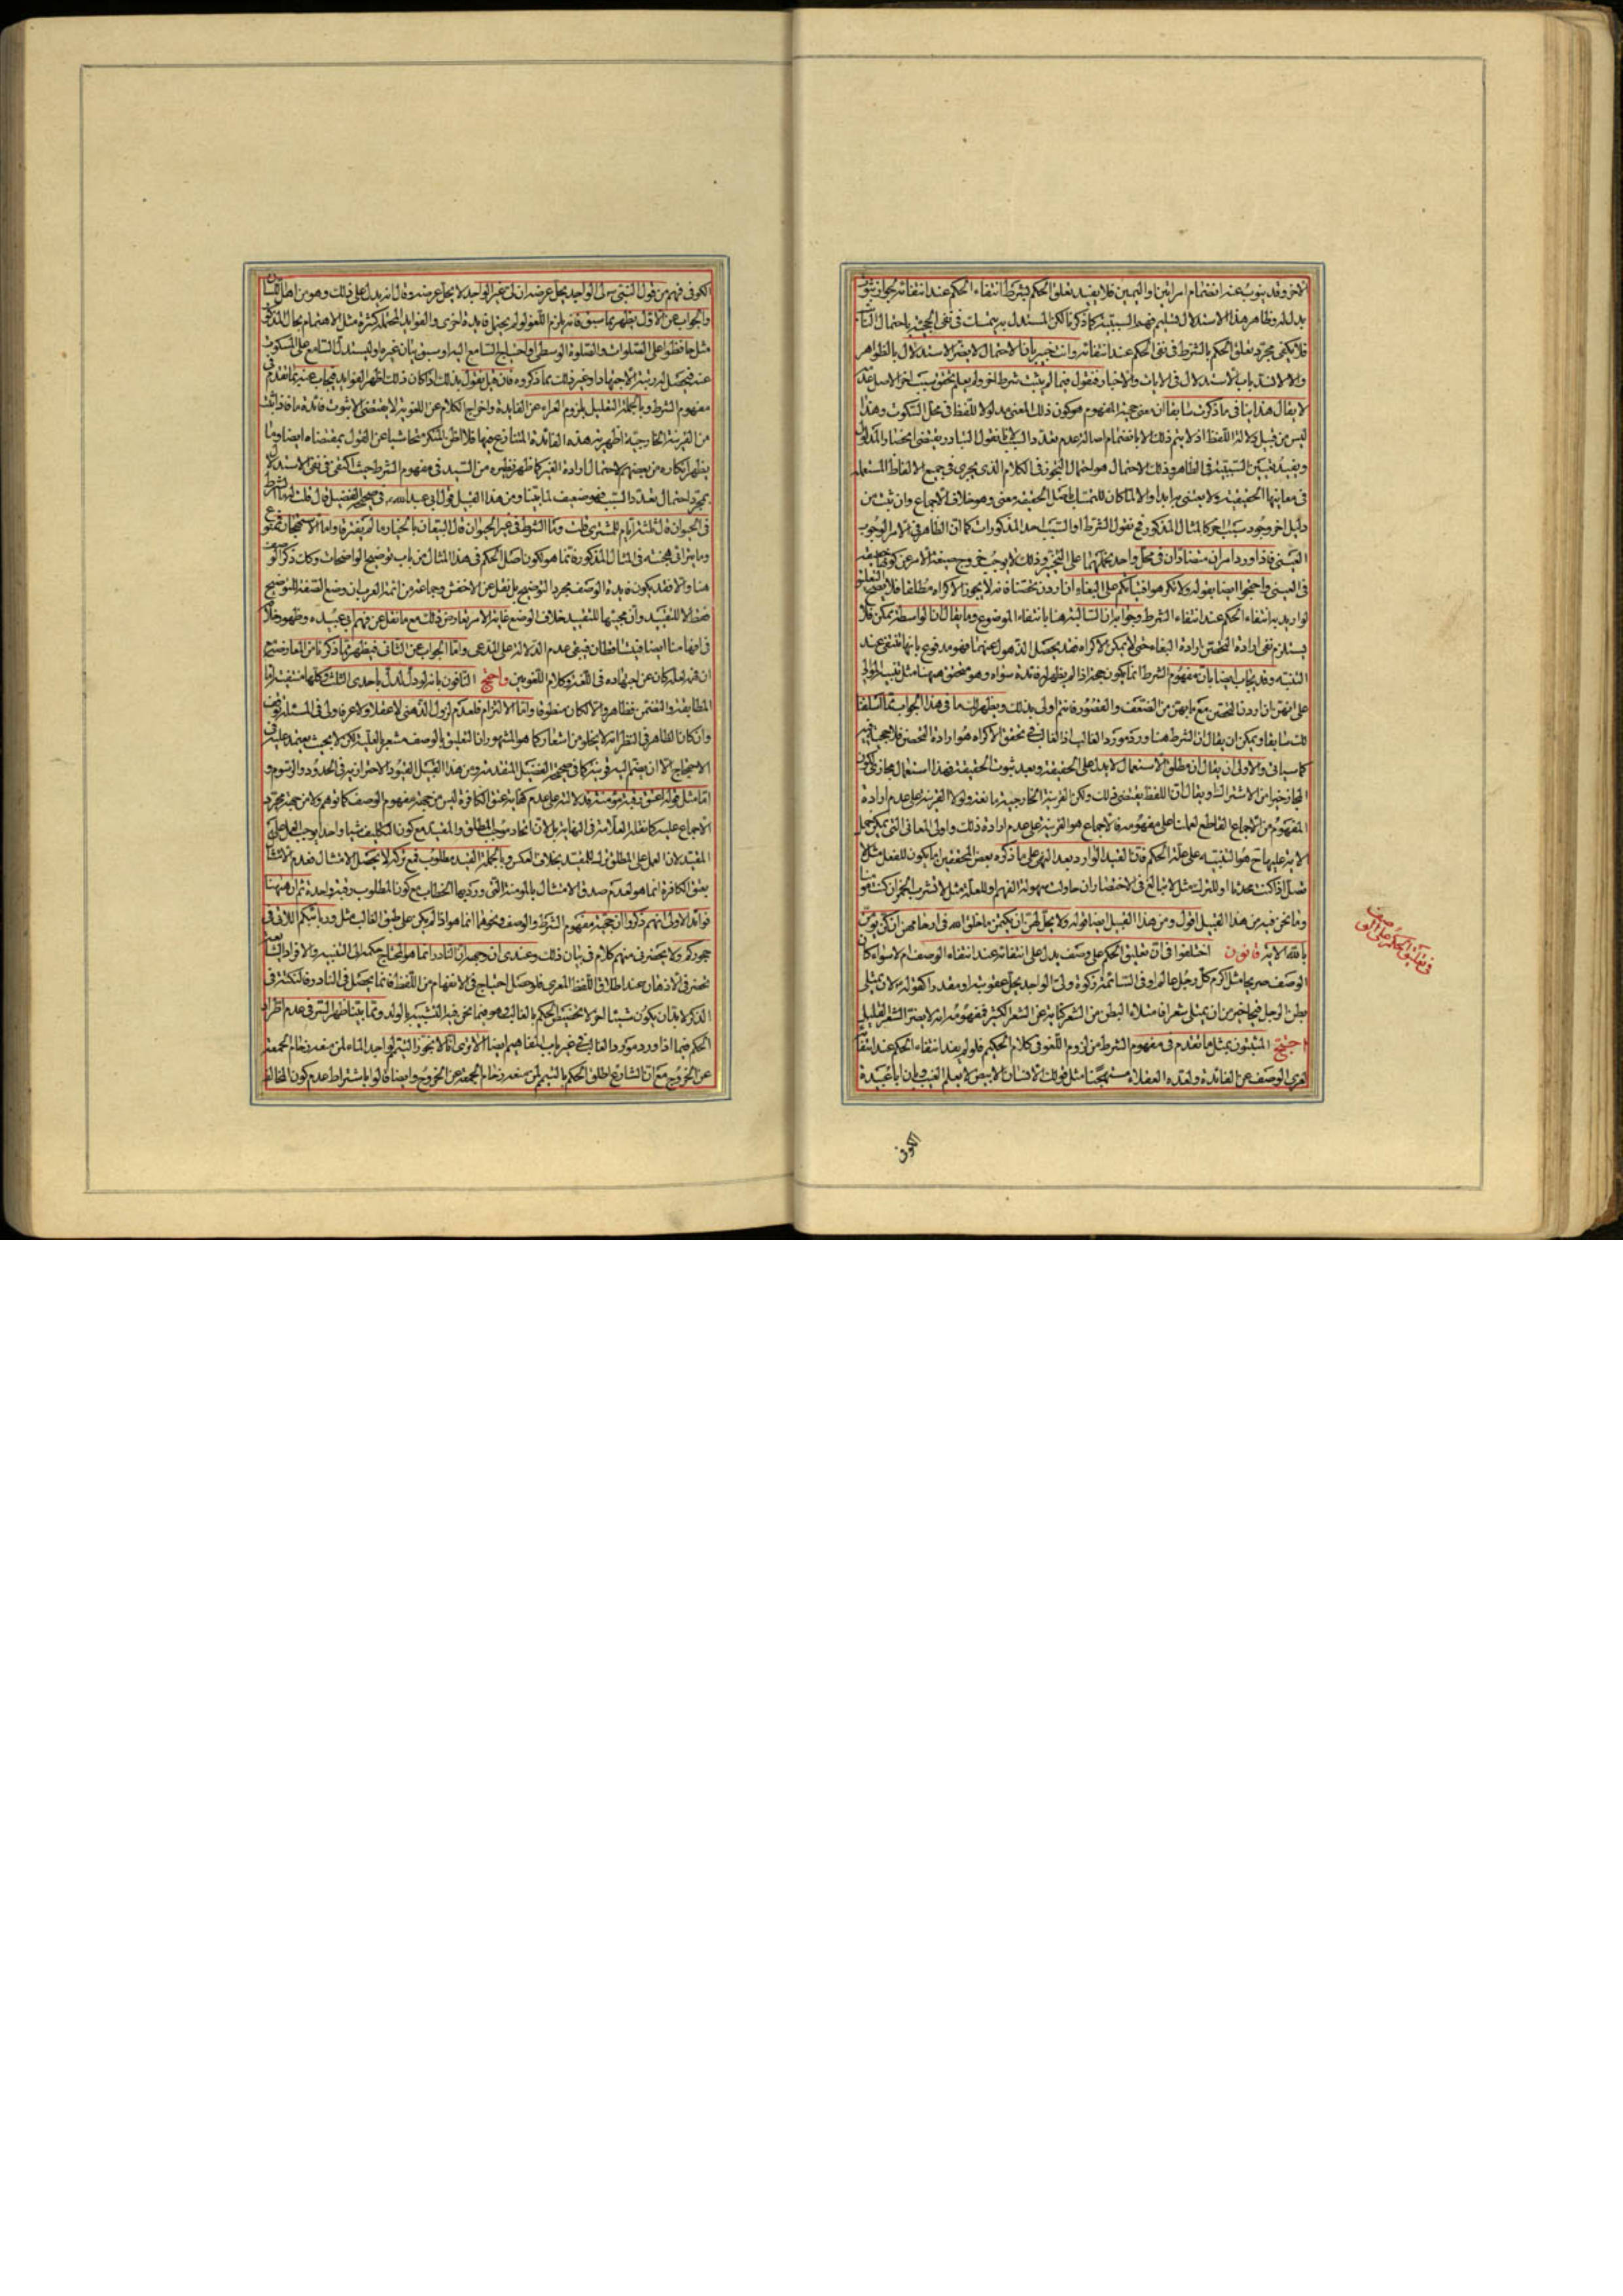 الاخر وقد ينوب عنه انضمام امراتين او اليمين فلا يفيد تعلق الحكم بشرط انتفاء الحكم عند انتفائه لجواز ثبوت
بدل له وظاهر هذا الاستدلال تسليم فهم السببية كما ذكرنا لكن المستدل به يتمسك في نفي الحجية باحتمال النائب
فلا يكفي مجرد تعلق الحكم بالشرط في نفي الحكم عند انتفائه وانت خبير بان الاحتمال لا يضر الاستدلال بالظواهر
والا لانسد باب الاستدلال في الايات والاخبار فنقول فيما لم يثبت شرط اخر ولم يعلم تحقق سبب اخر الاصل عدمه
لا يقال هذا ينافي ما ذكرت سابقا ان معنى حجية المفهوم هو كون ذلك المعنى مدلولا للفظ في محل السكوت وهذا
ليس من قبيل دلالة اللفظ اذ لا يتم ذلك الا بانضمام اصالة عدم تعدد السبب لانا نقول التبادر يقتضي انحصار المدلول
ويفيد تعيين السببية في الظاهر وذلك الاحتمال هو احتمال التجوز في الكلام الذي يجري في جميع الالفاظ المستعملة
في معانيها الحقيقية ولا يعتنى به ابدا والا لما كان للتمسك باصل الحقيقة معنى وهو خلاف الاجماع وان ثبت من
دليل اخر وجود سبب اخر كالمثال المذكور فح نقول الشرط او السبب احد المذكورات كما ان الظاهر في الامر الوجوب
العيني فاذا ورد امران متضادان في محل واحد نحملهما على التخيير وذلك لا يوجب خروج صيغة الامر عن كونها حقيقة
في العيني واحتجوا ايضا بقوله ولا تكرهوا فتياتكم على البغاء ان اردن تحصنا فانه لا يجوز الاكراه مطلقا فلا يصح التعليق
لو اريد به انتفاء الحكم عند انتفاء الشرط وجوابه ان السالبة هنا بانتفاء الموضوع وما يقال ان الواسطة ممكن فلا
يستلزم نفي ارادة التحصن ارادة البغاء حتى لا يمكن الاكراه فقد يحصل الذهول عنهما فهو مدفوع بانها تنتفي عند
التنبيه وقد يجاب ايضا بان مفهوم الشرط انما يكون حجة اذا لم يظهر له فائدة سواه وهو متحقق ههنا مثل تنبيه الموالي
على انهن ان اردن التحصن مع ما بهن من الضعف والقصور فانتم اولى بذلك ويظهر لك ما في هذا الجواب مما اسلفنا
لك سابقا ويمكن ان يقال ان الشرط هنا ورد مورد الغالب اذ الغالب في تحقق الاكراه هو ارادة التحصن فلا حجية فيه
كما سياتي والاولى ان يقال ان مطلق الاستعمال لا يدل على الحقيقة وبعد ثبوت الحقيقة فهذا استعمال مجازي لكون
المجاز خيرا من الاشتراك ويقال ان اللفظ يقتضي ذلك ولكن القرينة الخارجية مانعة ولولا القرينة على عدم ارادة
المفهوم من الاجماع القاطع لعملنا على مفهومه فالاجماع هو القرينة على عدم ارادة ذلك واولى المعاني التي يمكن حمل
الاية عليها ح هو التنبيه على علة الحكم فان القيد الوارد بعد النهي على ما ذكره بعض المحققين اما يكون للفعل مثل لا
تصل اذا كنت محدثا او للترك مثل لا تبالغ في الاختصار ان حاولت سهولة الفهم او للعلة مثل لا تشرب الخمر ان كنت مؤمنا
وما نحن فيه من هذا القبيل اقول ومن هذا القبيل ايضا قوله ولا يحل لهن ان يكتمن ما خلق الله في ارحامهن ان كن يؤمن
بالله الاية قانون اختلفوا في ان تعليق الحكم على وصف يدل على انتفائه عند انتفاء الوصف ام لا سواء كان
الوصف صريحا مثل اكرم كل رجل عالم او في السائمة زكوة ولي الواجد يحل عقوبته او مقدرا كقوله لان يمتلي
بطن الرجل قيحا خير من ان يمتلي شعرا فامتلاء البطن من الشعر كناية عن الشعر الكثير فمفهومه انه لا يضر الشعر القليل
احتج المثبتون بمثل ما تقدم في مفهوم الشرط من لزوم اللغو في كلام الحكيم فلو لم يفد انتفاء الحكم عند انتفائه
لعري الوصف عن الفائدة ولعده العقلاء مستهجنا مثل قولك الانسان الابيض لا يعلم الغيب وبان ابا عبيدة
في تعليق الحكم على الوصف
الكوفي
الكوفي فهم من قول النبي لي الواجد يحل عرضه ان لي غير الواجد لا يحل عرضه وقال انه يدل على ذلك وهو من اهل اللسان
والجواب عن الاول يظهر مما سبق فانه يلزم اللغو لو لم يحتمل فائدة اخرى والفوايد المحتملة كثيرة مثل الاهتمام بحال المذكور
مثل حافظوا على الصلوات والصلوة الوسطى او احتياج السامع اليه او سبق بيان غيره او ليستدل السامع على المسكوت
عنه فيحصل له رتبة الاجتهاد او غير ذلك مما ذكروه فان قيل نقول بذلك اذا كان ذلك اظهر الفوايد فيجاب عنه بما تقدم في
مفهوم الشرط وبالجملة التعليل بلزوم العراء عن الفايدة واخراج الكلام عن اللغوية لا يقتضي الا ثبوت فائدة ما فاذا ثبت
من القرينة الخارجية اظهرية هذه الفائدة المتنازع فيها فلا اظن المنكر متحاشيا عن القول بمقتضاه ايضا وما
يظهر انكاره من بعضهم لاحتمال ارادة الغير كما ظهر نظيره من السيد في مفهوم الشرط حيث اكتفى في نفي الاستدلال
بمجرد احتمال تعدد السبب فهو ضعيف لما بينا ومن هذا القبيل قول ابي عبد الله في صحيحة الفضيل قال قلت له ما الشرط
في الحيوان قال ثلثة ايام للمشتري قلت وما الشرط في غير الحيوان قال البيعان بالخيار ما لم يفترقا واما الاستهجان فممنوع
وما يترائى هجنته في المثال المذكور فانما هو لكون اصل الحكم في هذا المثال من باب توضيح الواضحات وكان ذكر الوصف
هنا والا فقد يكون فايدة الوصف مجرد التوضيح بل نقل عن الاخفش وجماعة من ائمة العرب ان وضع الصفة للتوضيح
فقط لا للتقييد وان مجيئها للتقييد خلاف الوضع غاية الامر تعارض ذلك مع ما نقل عن فهم ابي عبيدة وظهور خلافه
في افهامنا ايضا فيتساقطان فيبقى عدم الدلالة على المدعى واما الجواب عن الثاني فيظهر مما ذكرنا من المعارضة مع
ان فهمه لعله كان عن اجتهاده في اللغة وكلام اللغويين واحتج النافون بانه لو دل لدل باحدى الثلث وكلها منتفية اما
المطابقة والتضمن فظاهر والا لكان منطوقا واما الالتزام فلعدم لزوم الذهني لا عقلا ولا عرفا ولي في المسئلة توقف
وان كان الظاهر في النظر انه لا يخلو من اشعار كما هو المشهور ان التعليق بالوصف مشعر بالعلية لكن لا بحيث يعتمد عليه في
الاحتجاج الا ان ينضم اليه قرينة كما في صحيحة الفضيل المتقدمة ومن هذا القبيل القيود الاحترازية في الحدود والرسوم و
اما مثل قوله اعتق رقبة مؤمنة فدلالته على عدم كفاية عتق الكافرة ليس من جهة مفهوم الوصف كما توهم ولا من جهة مجرد
الاجماع عليه كما نقله العلامة في النهاية بل لان اتحاد موجب المطلق والمقيد مع كون التكليف شيئا واحدا يوجب العمل على
المقيد لان العمل على المطلق ترك للمقيد بخلاف العكس وبالجملة القيد مطلوب فمع تركه لا يحصل الامتثال فعدم الامتثال
بعتق الكافرة انما هو لعدم صدق الامتثال بالمؤمنة التي ورد بها الخطاب مع كون المطلوب رقبة واحدة ثم ان ههنا
فوائد الاولى انهم ذكروا ان حجية مفهوم الشرط والوصف ونحوهما انما هو اذا لم يكن على طبق الغالب مثل وربائبكم اللاتي في
حجوركم ولا يحضرني منهم كلام في بيان ذلك وعندي ان وجهه ان النادر انما هو المحتاج حكمه الى التنبيه والافراد الشايعة
تحضر في الاذهان عند اطلاق اللفظ المعرى فلو حصل احتياج في الانفهام من اللفظ فانما يحصل في النادر فالنكتة في
الذكر لا بد ان يكون شيئا اخر لا تخصيص الحكم بالغالب وهو فيما نحن فيه التشبيه بالولد ومما بينا ظهر السر في عدم اطراد
الحكم فيما اذا ورد مورد الغالب في غير باب المفاهيم ايضا الا ترى انا لا نجوز التيمم لواجد الماء لمن منعه زحام الجمعة
عن الخروج مع ان الشارع اطلق الحكم بالتيمم لمن منعه زحام الجمعة عن الخروج وايضا قالوا باشتراط عدم كون المخالف